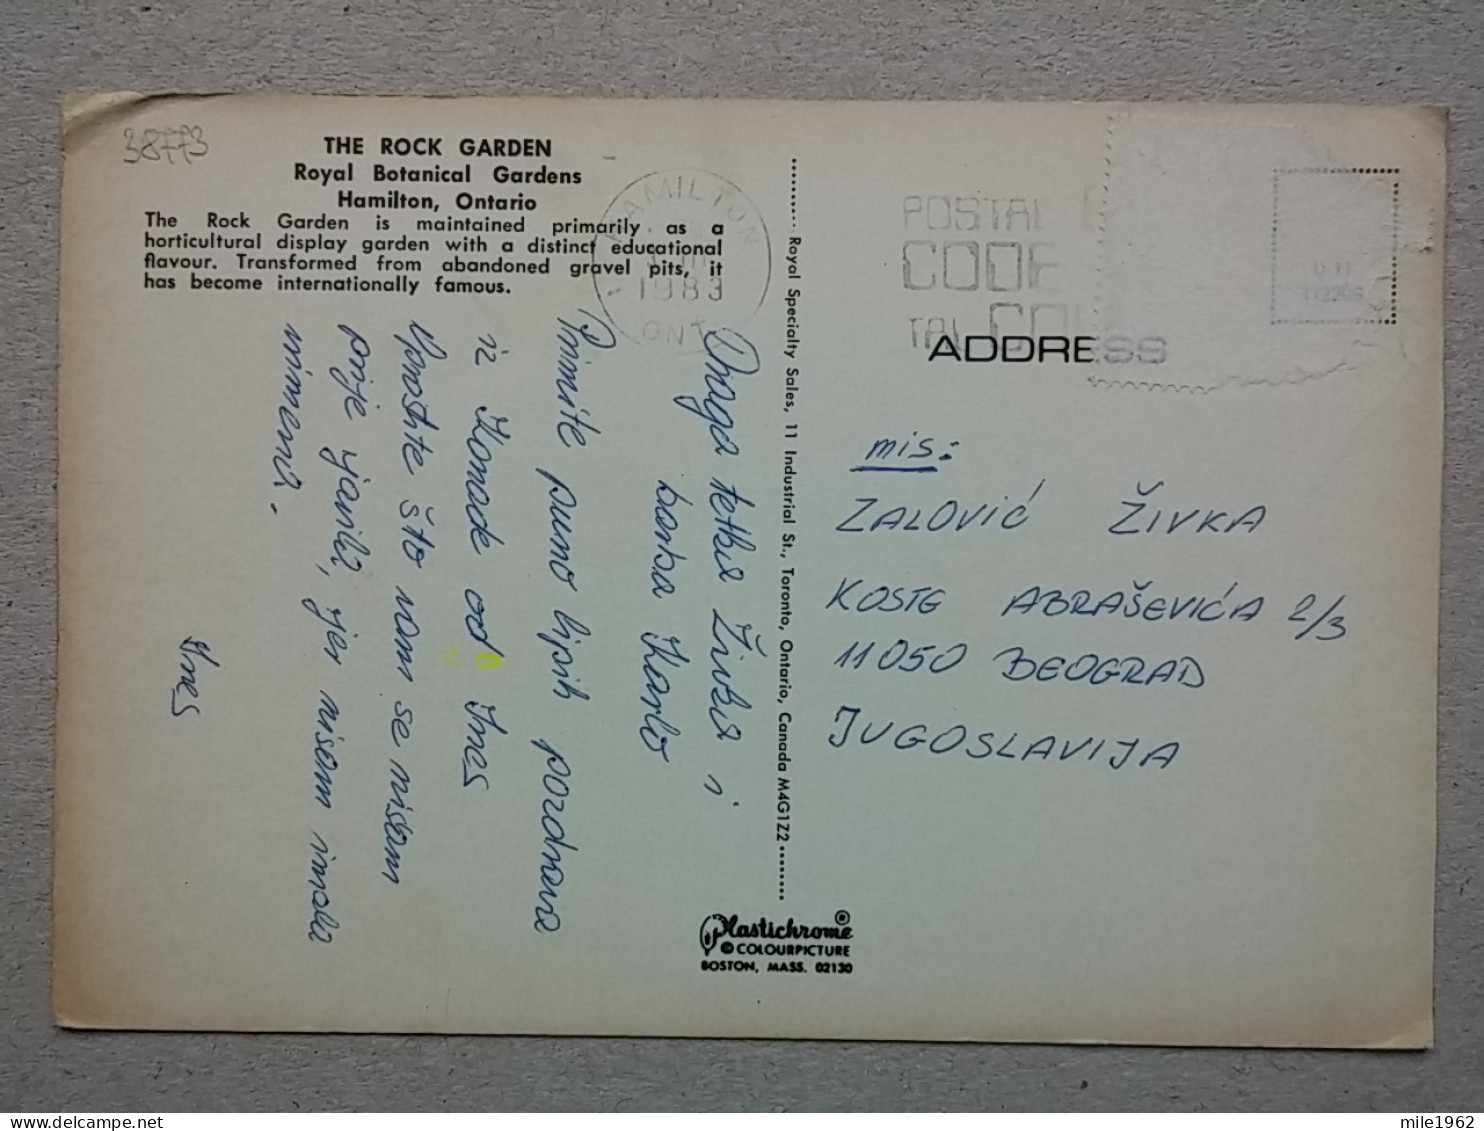 38773
THE ROCK GARDEN
Royal Botanical Gardens
Hamilton, Ontario
The Rock Garden is maintained primarily as a
horticultural display garden with a distinct educational
flavour. Transformed from abandoned gravel pits, it
has become internationally famous.
HAMILTON
1983
ONT
POSTAL
CODE
TAL CO
ADDRESS
Draga tetka Živka i
barba Karlo
Primite puno lipih pozdrava
iz Kanade od Ines
Oprostite što vam se nisam
prije javila, jer nisam imala
vrimena.
Ines
Royal Specialty Sales, 11 Industrial St., Toronto, Ontario, Canada M4G1Z2
mis:
ZALOVIĆ ŽIVKA
KOSTE ABRAŠEVIĆA 2/3
11050 BEOGRAD
JUGOSLAVIJA
Plastichrome ®
© COLOURPICTURE
BOSTON, MASS. 02130
mile1962